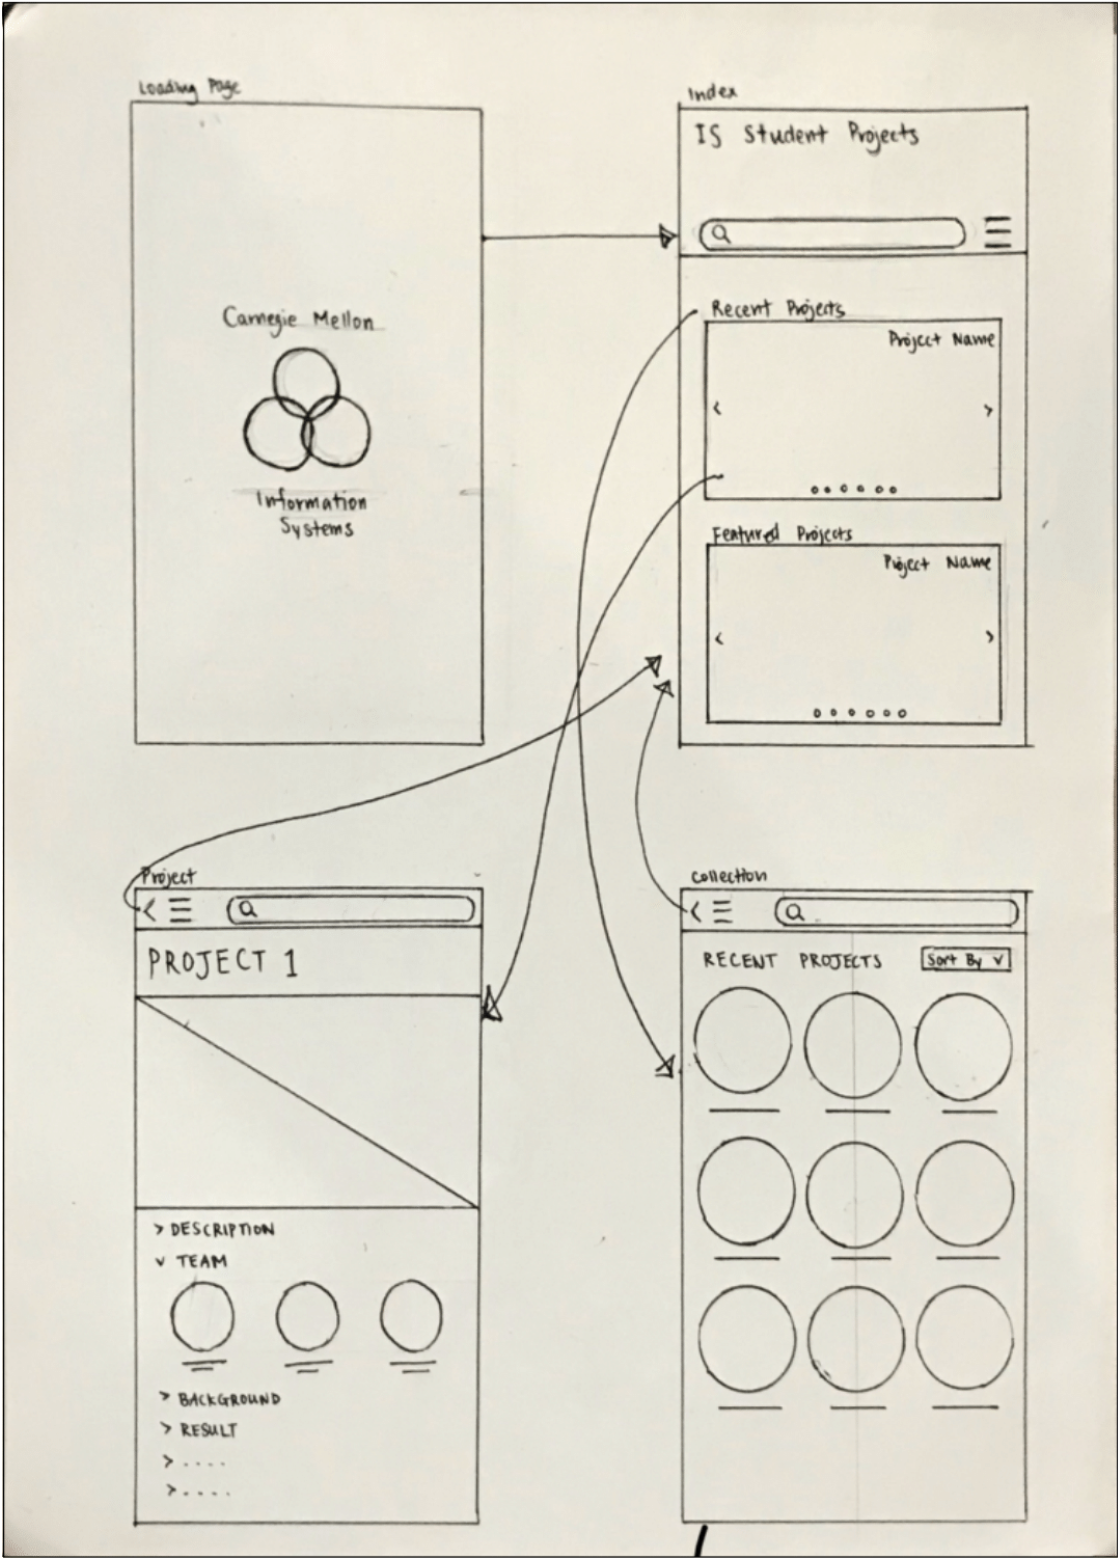 Loading Page
Carnegie Mellon
Information
Systems
Index
IS Student Projects
Recent Projects
Project Name
Featured Projects
Project Name
Project
PROJECT 1
> DESCRIPTION
v TEAM
> BACKGROUND
> RESULT
> ....
> ....
Collection
RECENT PROJECTS
Sort By v